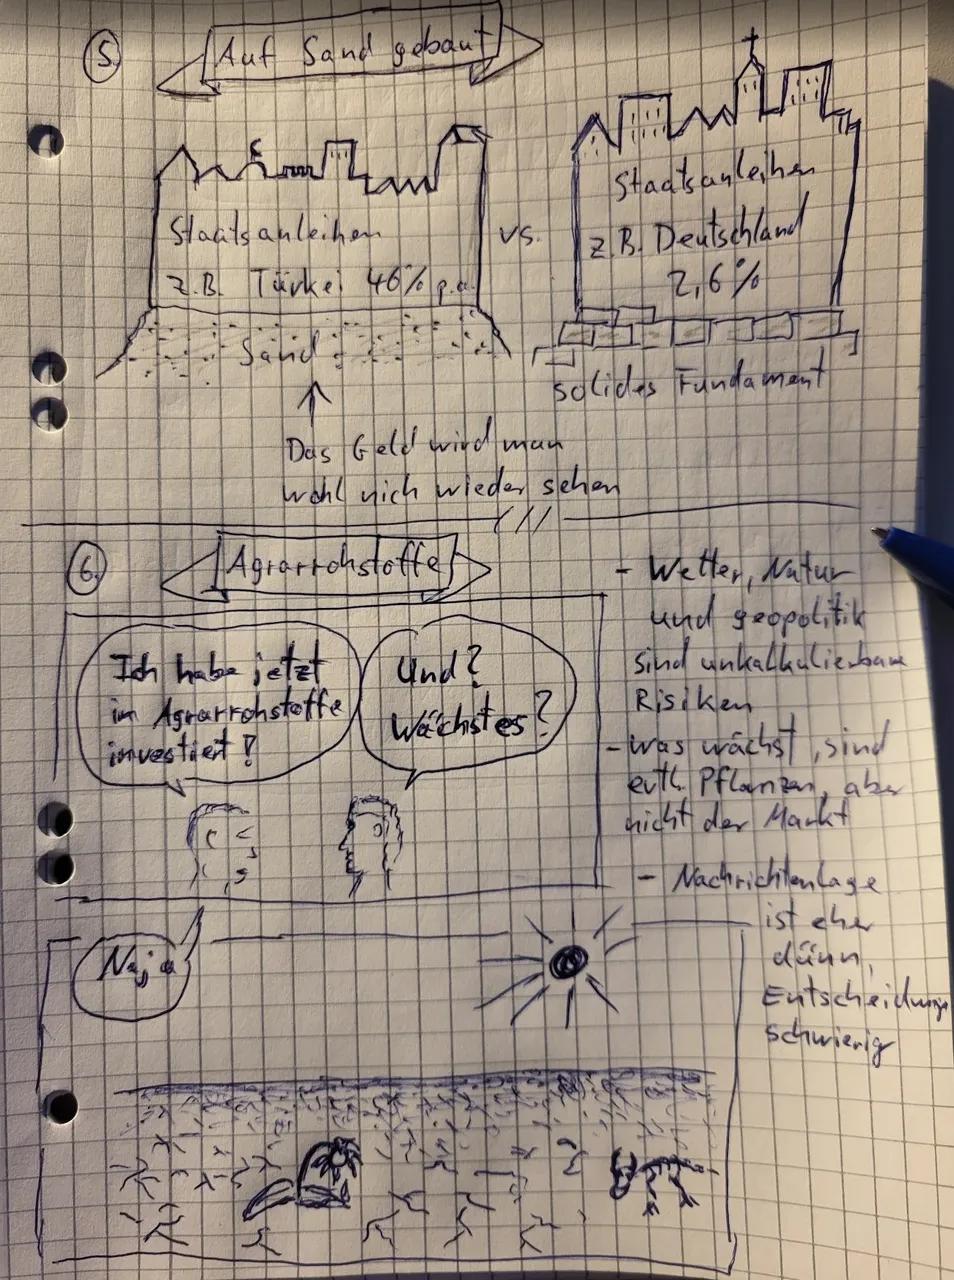 5.
Auf Sand gebaut
Staatsanleihen
z.B. Türkei 46% p.a.
Sand
vs.
Staatsanleihen
z.B. Deutschland
2,6%
solides Fundament
Das Geld wird man
wohl nich wieder sehen
6.
Agrarrohstoffe
Ich habe jetzt
in Agrarrohstoffe
investiert!
Und?
Wächst es?
- Wetter, Natur
und geopolitik
sind unkalkulierbare
Risiken
- was wächst, sind
evtl. Pflanzen, aber
nicht der Markt
- Nachrichtenlage
ist eher
dünn,
Entscheidunge
schwierig
Naja